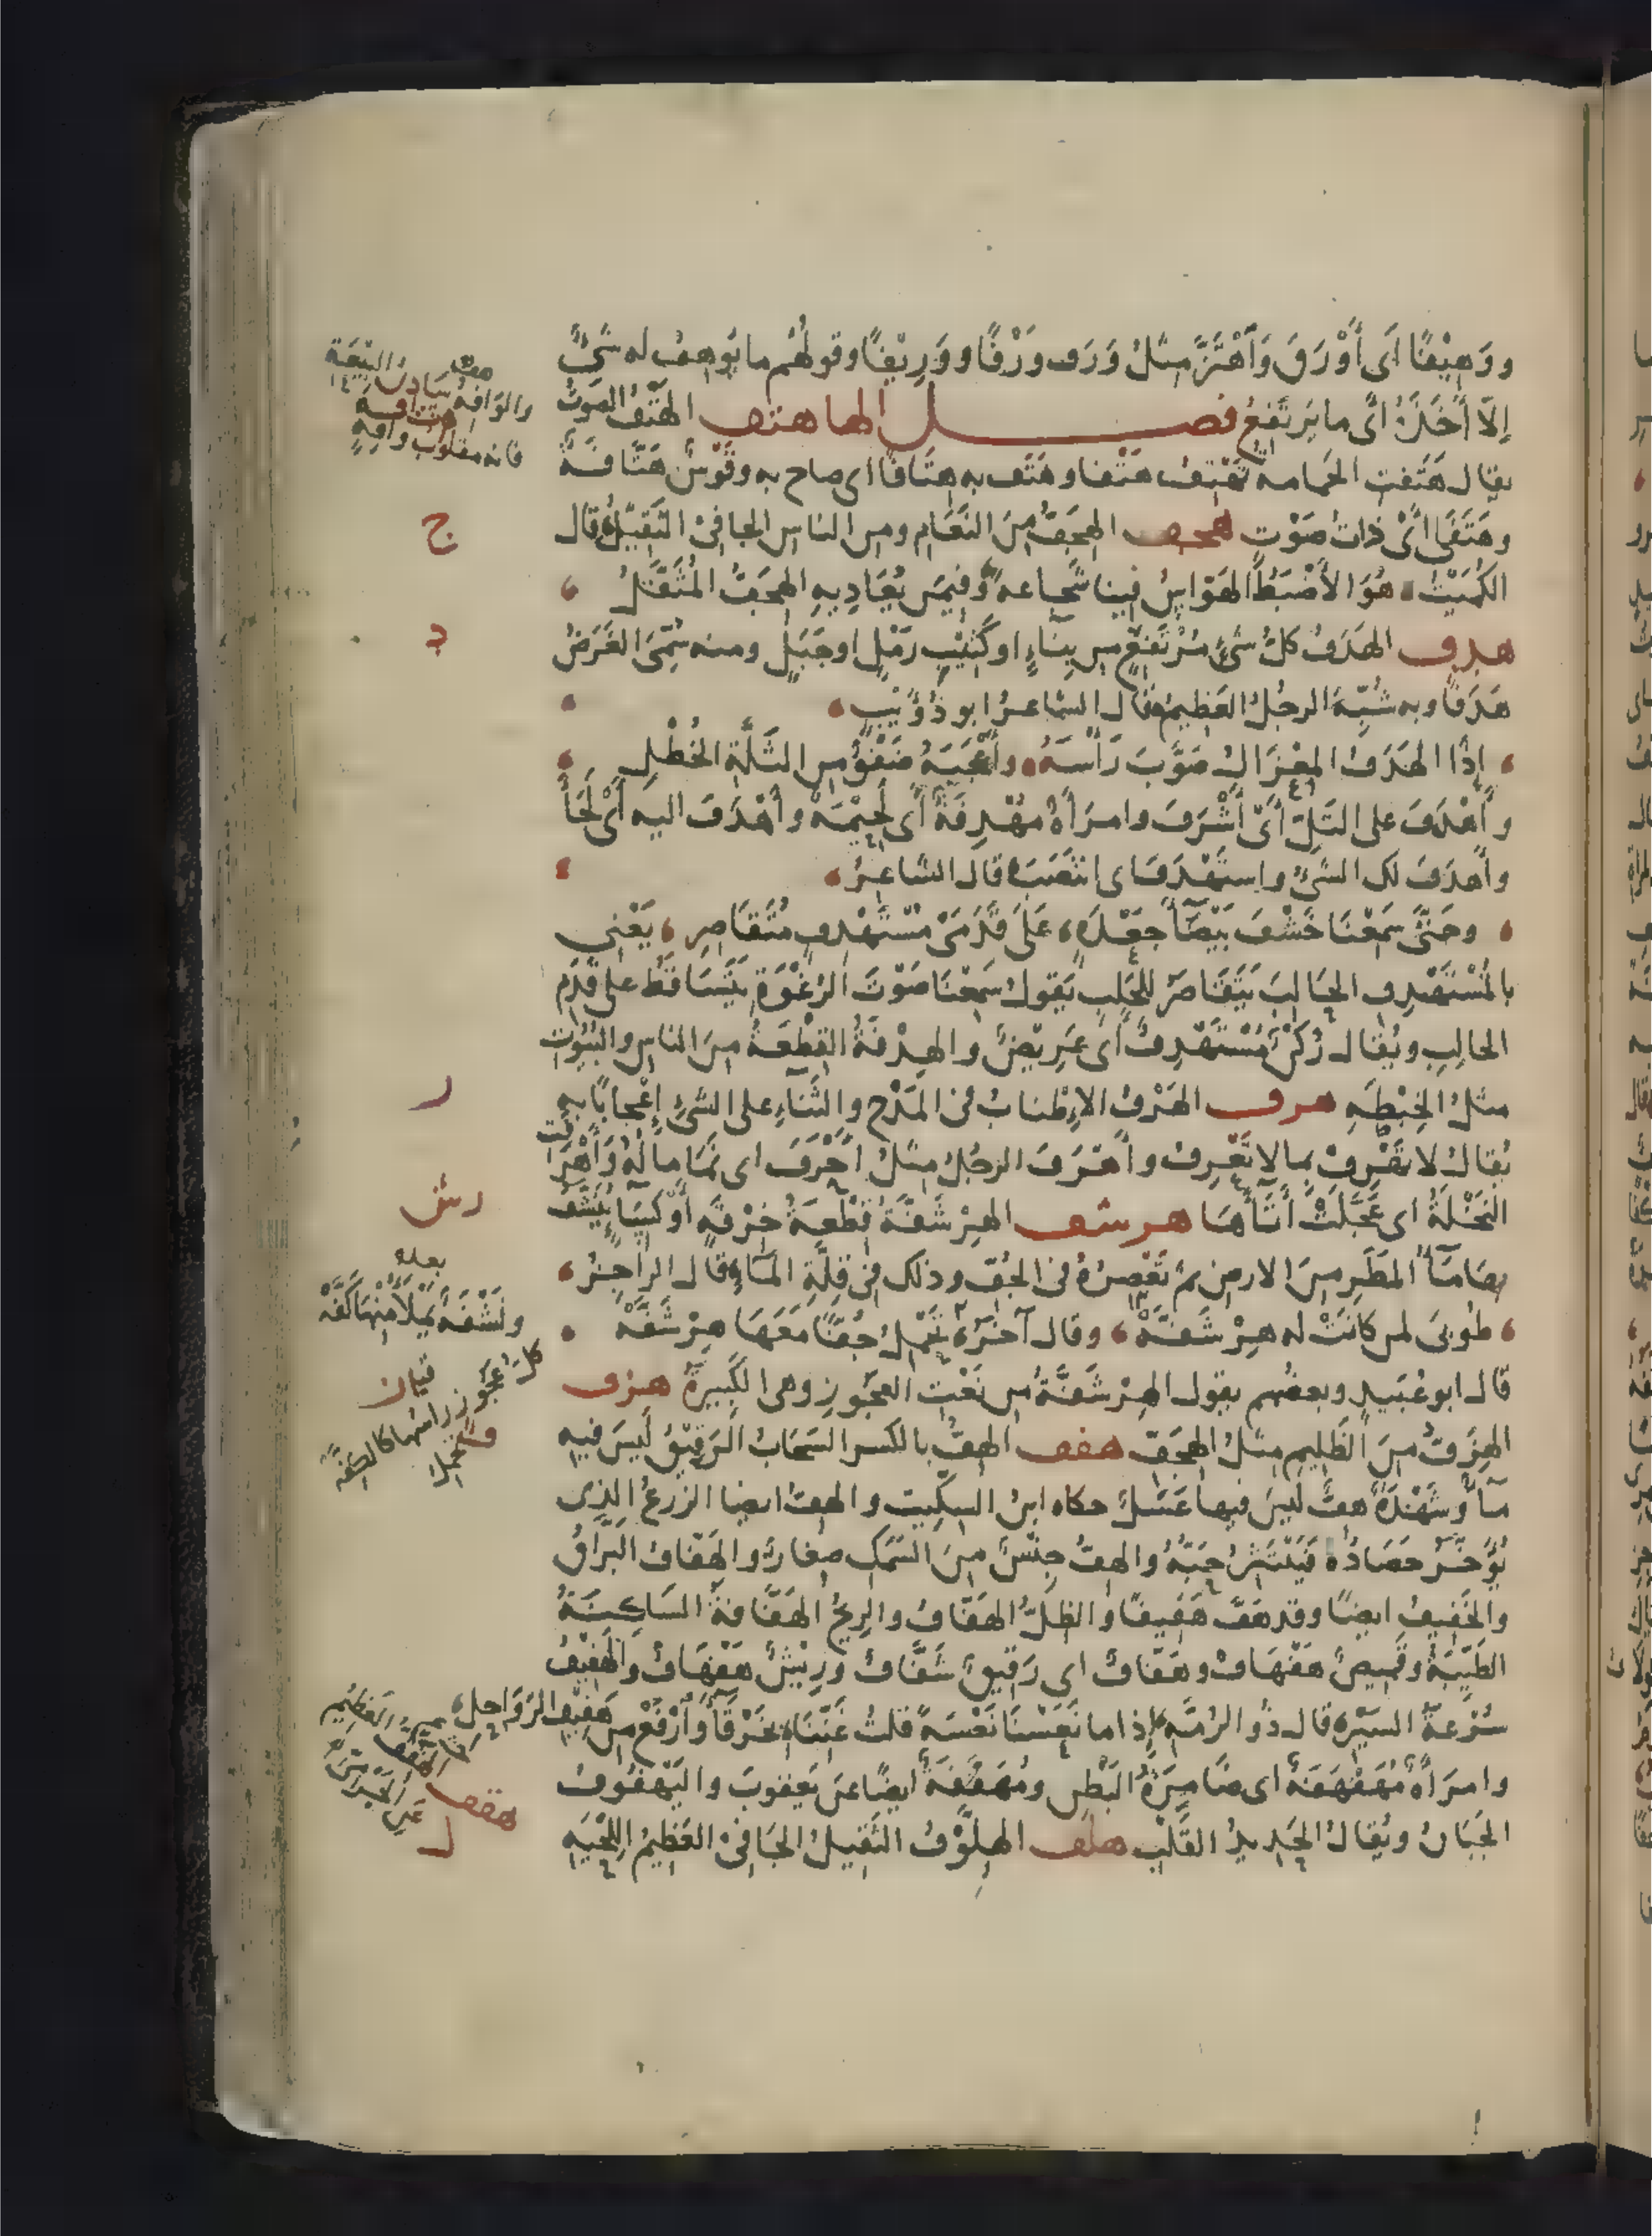 ووَهِيْفًا اَى أَوْرَقَ وَٱهْتَزَّ مِثْلُ وَرَفَ وَرْفًا ووَرِيْفًا وقولهُم ما يُوهِفُ له شَىْءٌ
إلّا أَخَذَهُ اَىْ ما يَرتَفِعُ فصــل الها هتف الهَتْفُ الصَوْتُ
يقال هَتَفَتِ الحَمامة تَهْتِفُ هَتْفا وهَتَف به هِتَافًا اى صاح به وقَوْسٌ هَتَّافَةٌ
وهَتَفَى اَىْ ذاتُ صَوْتٍ هجف الهِجَفُّ مِنَ النَعَامِ ومن الناس الجافِىْ الثَقِيْلُ قال
الكُمَيْتُ هُوَ الأَضْبَطُ الهَوّاسُ فينا شَجاعةً وفيمَن يُعَادِيهِ الهِجَفُّ المُثَقَّلُ
هدف الهَدَفُ كلُّ شَىْءٍ مُرْتَفِعٍ مِن بِنَاءٍ او كَثِيْبِ رَمْلٍ او جَبَلٍ ومنه سُمِّىَ الغَرَضُ
هَدَفًا وبه شُبِّهَ الرجُلُ العَظِيمُ قال الشاعرُ ابو ذُؤَيْبٍ
إذا الهَدَفُ المِعْزَالُ صَوَّبَ رَأْسَهُ وأَعْجَبَهُ ضَفْوٌ مِن الثَلَّةِ الخُطْلِ
وأَهْدَفَ على التَلِّ اَىْ أَشْرَفَ وامرَأَةٌ مُهْدِفَةٌ اَى لَحِيْمَةٌ وأَهْدَفَ اليه اَىْ لَجَأَ
وأَهدَفَ لك الشَىْءُ واستَهْدَفَ اى انتَصَبَ قال الشاعِرُ
وحَتَّى سَمِعْنَا خَشْفَ بَيْضَآءَ جَعْدَةٍ عَلَى قَدَمَىْ مُسْتَهْدِفٍ مُتَقَاصِرِ يَعْنِي
بالمُسْتَهْدِفِ الحَالِبَ يَتَقَاصَرُ للحَلبِ يَقولُ سَمِعْنَا صَوْتَ الرَغْوَةِ يَتَسَاقَطُ على قَدَمِ
الحالِبِ ويُقال رُكْنٌ مُسْتَهْدِفٌ اَى عَرِيْضٌ والهِدْفَةُ القِطْعَةُ مِنَ الناسِ والبُيُوتِ
مثلُ الخِبْطَةِ هرف الهَرْفُ الاِطْنابُ فى المَدْحِ والثَنَاءِ على الشَىْءِ إِعْجابًا بهِ
يُقالُ لا تَهْرِفْ بما لا تَعْرِفُ وأَهْرَفَ الرجُلُ مِثلُ أَحْرَفَ اى نَمَا مالُهُ وأَهْرَفَت
النَخْلَةُ اى عَجَّلَتْ أَتَآءَهَا هرشف الهِرْشَفَّةُ قِطْعَةُ خِرْقَةٍ أَوْ كِسَاءٍ يُنَشَّفُ
بها مَآءُ المَطَرِ مِنَ الارضِ ثمّ تُعْصَرُ فى الجُفِّ وذلك فِى قِلَّةِ المَآءِ قال الراجِزُ
طُوبَى لمن كانَتْ له هِرْشَفَّهْ وقال آخَرُ تَحْمِلُ جُفًّا مَعَهَا هِرْشَفَّهْ
قال ابو عُبَيدٍ وبعضُهم يقول الهِرْشَفَّةُ مِن نَعْتِ العَجُوزِ وهى الكَبِيرَةُ هزف
الهِزَفُّ مِنَ الظَلِيمِ مثلُ الهِجَفِّ هفف الهِفُّ بالكسر السَحَابُ الرَقِيْقُ لَيسَ فيهِ
مَآءٌ وشَهْدَةٌ هِفٌّ لَيسَ فيها عَسَلٌ حكاه ابنُ السِكِّيت والهِفُّ ايضا الزرعُ الذِى
يُؤَخَّرُ حَصَادُهُ فَيَنْتَثِرُ حَبُّهُ والهِفُّ جِنْسٌ مِنَ السَمَكِ صِغارٌ والهَفّافُ البَرّاقُ
والخَفِيفُ ايضًا وقد هَفَّ هَفِيفًا والظِلُّ الهَفّافُ والرِيحُ الهَفّافَةُ السَاكِنَةُ
الطَيِّبَةُ وقَمِيصٌ هَفْهَافٌ وهَفّافٌ اى رَقِيقٌ شَفّافٌ ورِيْشٌ هَفْهَافٌ والهَفِيْفُ
سُرْعَةُ السَيْرِ قال ذُو الرُمَّةِ إذا ما نَعَسْنَا نَعْسَةً قلتُ غَنِّنَا بِخَرْقَآءَ وَٱرْفَعْ مِن هَفِيْفِ الرَوَاحِلِ
وامرَأَةٌ مُهَفْهَفَةٌ اى ضَامِرَةُ البَطْنِ ومُهَفَّفَةٌ ايضًا عن يَعقوبَ واليَهْفُوفُ
الجَبَانُ ويُقالُ الحَدِيدُ القَلْبِ هلف الهِلَّوْفُ الثَقِيلُ الجَافِىْ العَظِيمُ اللِحْيَةِ
والوَافِهُ سَادِنُ البِيْعَةِ
فانه مقلوب وافِهٍ
ج
د
ر
رش
بعده
ونَشْفَةٌ يَمْلَأُ مِنْهَا كَفَّهْ
كلُّ عَجُوزٍ راسُها كالكِفَّهْ
هقف
ل